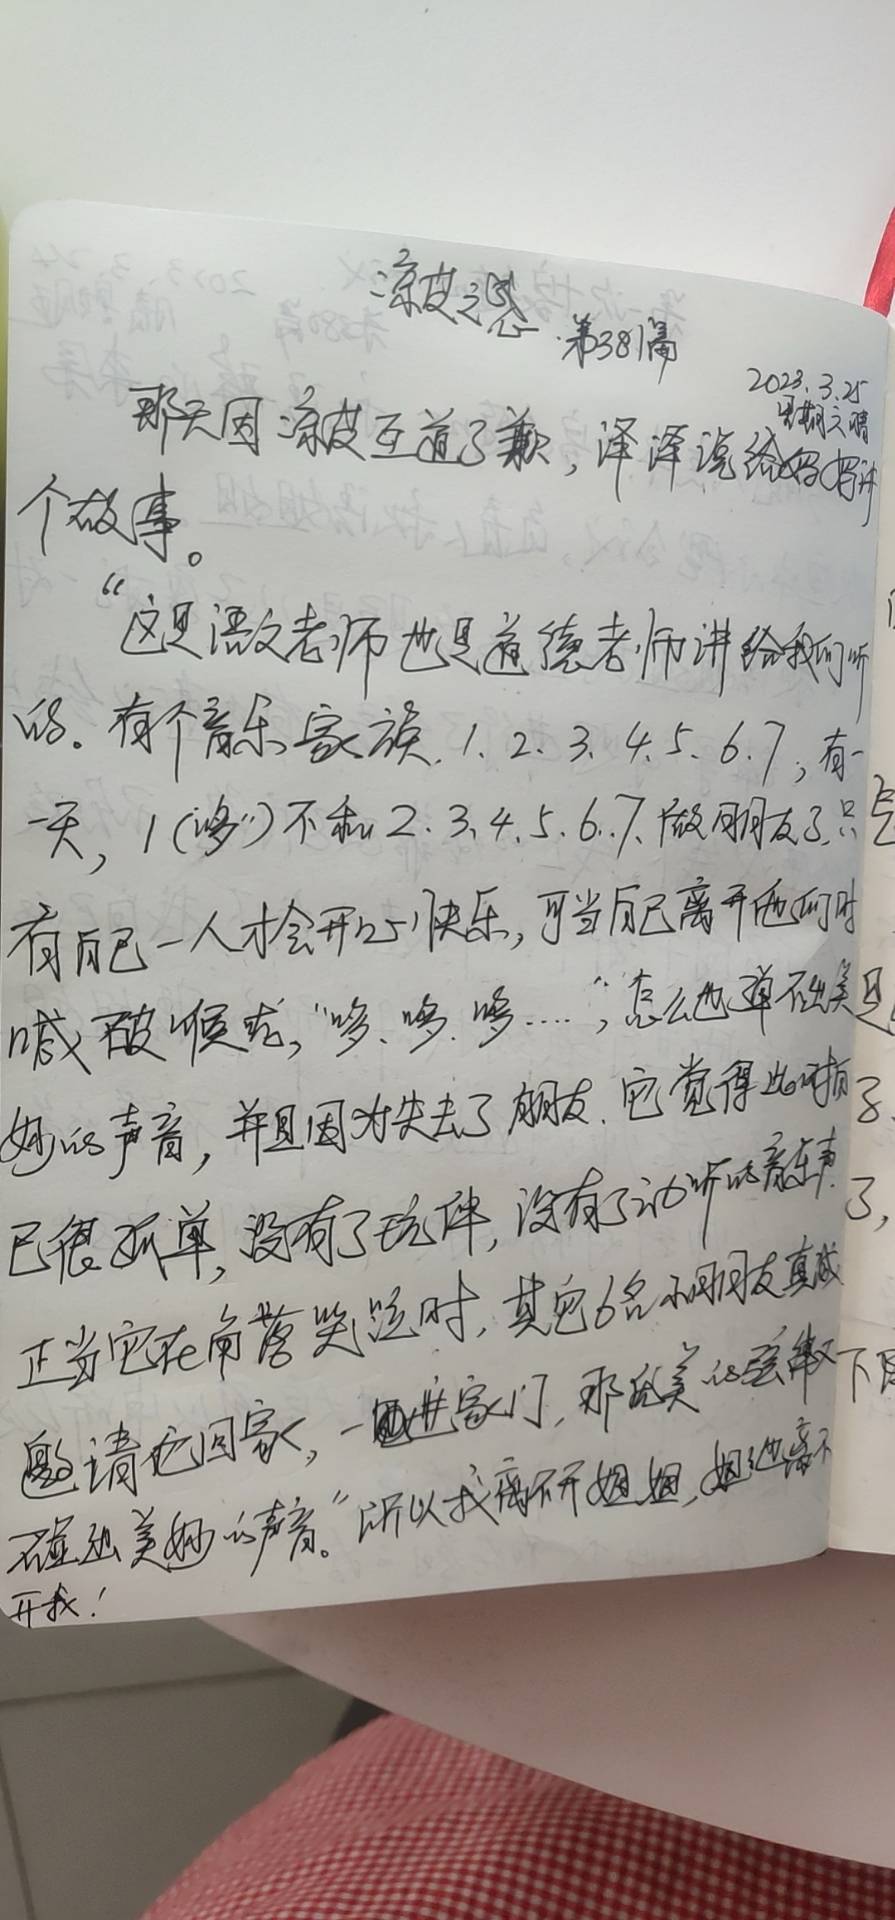 凉皮之惑
第381篇
2023.3.25
星期六 晴
那天因凉皮互道了歉，泽泽说给妈妈讲
个故事。
“这是语文老师也是道德老师讲给我们听
的。有个音乐家族.1.2.3.4.5.6.7，有一
天，1(哆)不和2.3.4.5.6.7.做朋友了.只
有自己一人才会开心快乐，可当自己离开他们时
喊破喉咙，“哆、哆、哆....”，怎么也弹不出美
妙的声音，并且因为失去了朋友.它觉得此时自
已很孤单，没有了玩伴，没有了动听的音乐声
正当它在角落哭泣时，其它6名小朋友真诚
邀请它回家，一进家门，那优美的弦律又
碰出美妙的声音。”所以我离不开姐姐，姐姐也离不
开我！